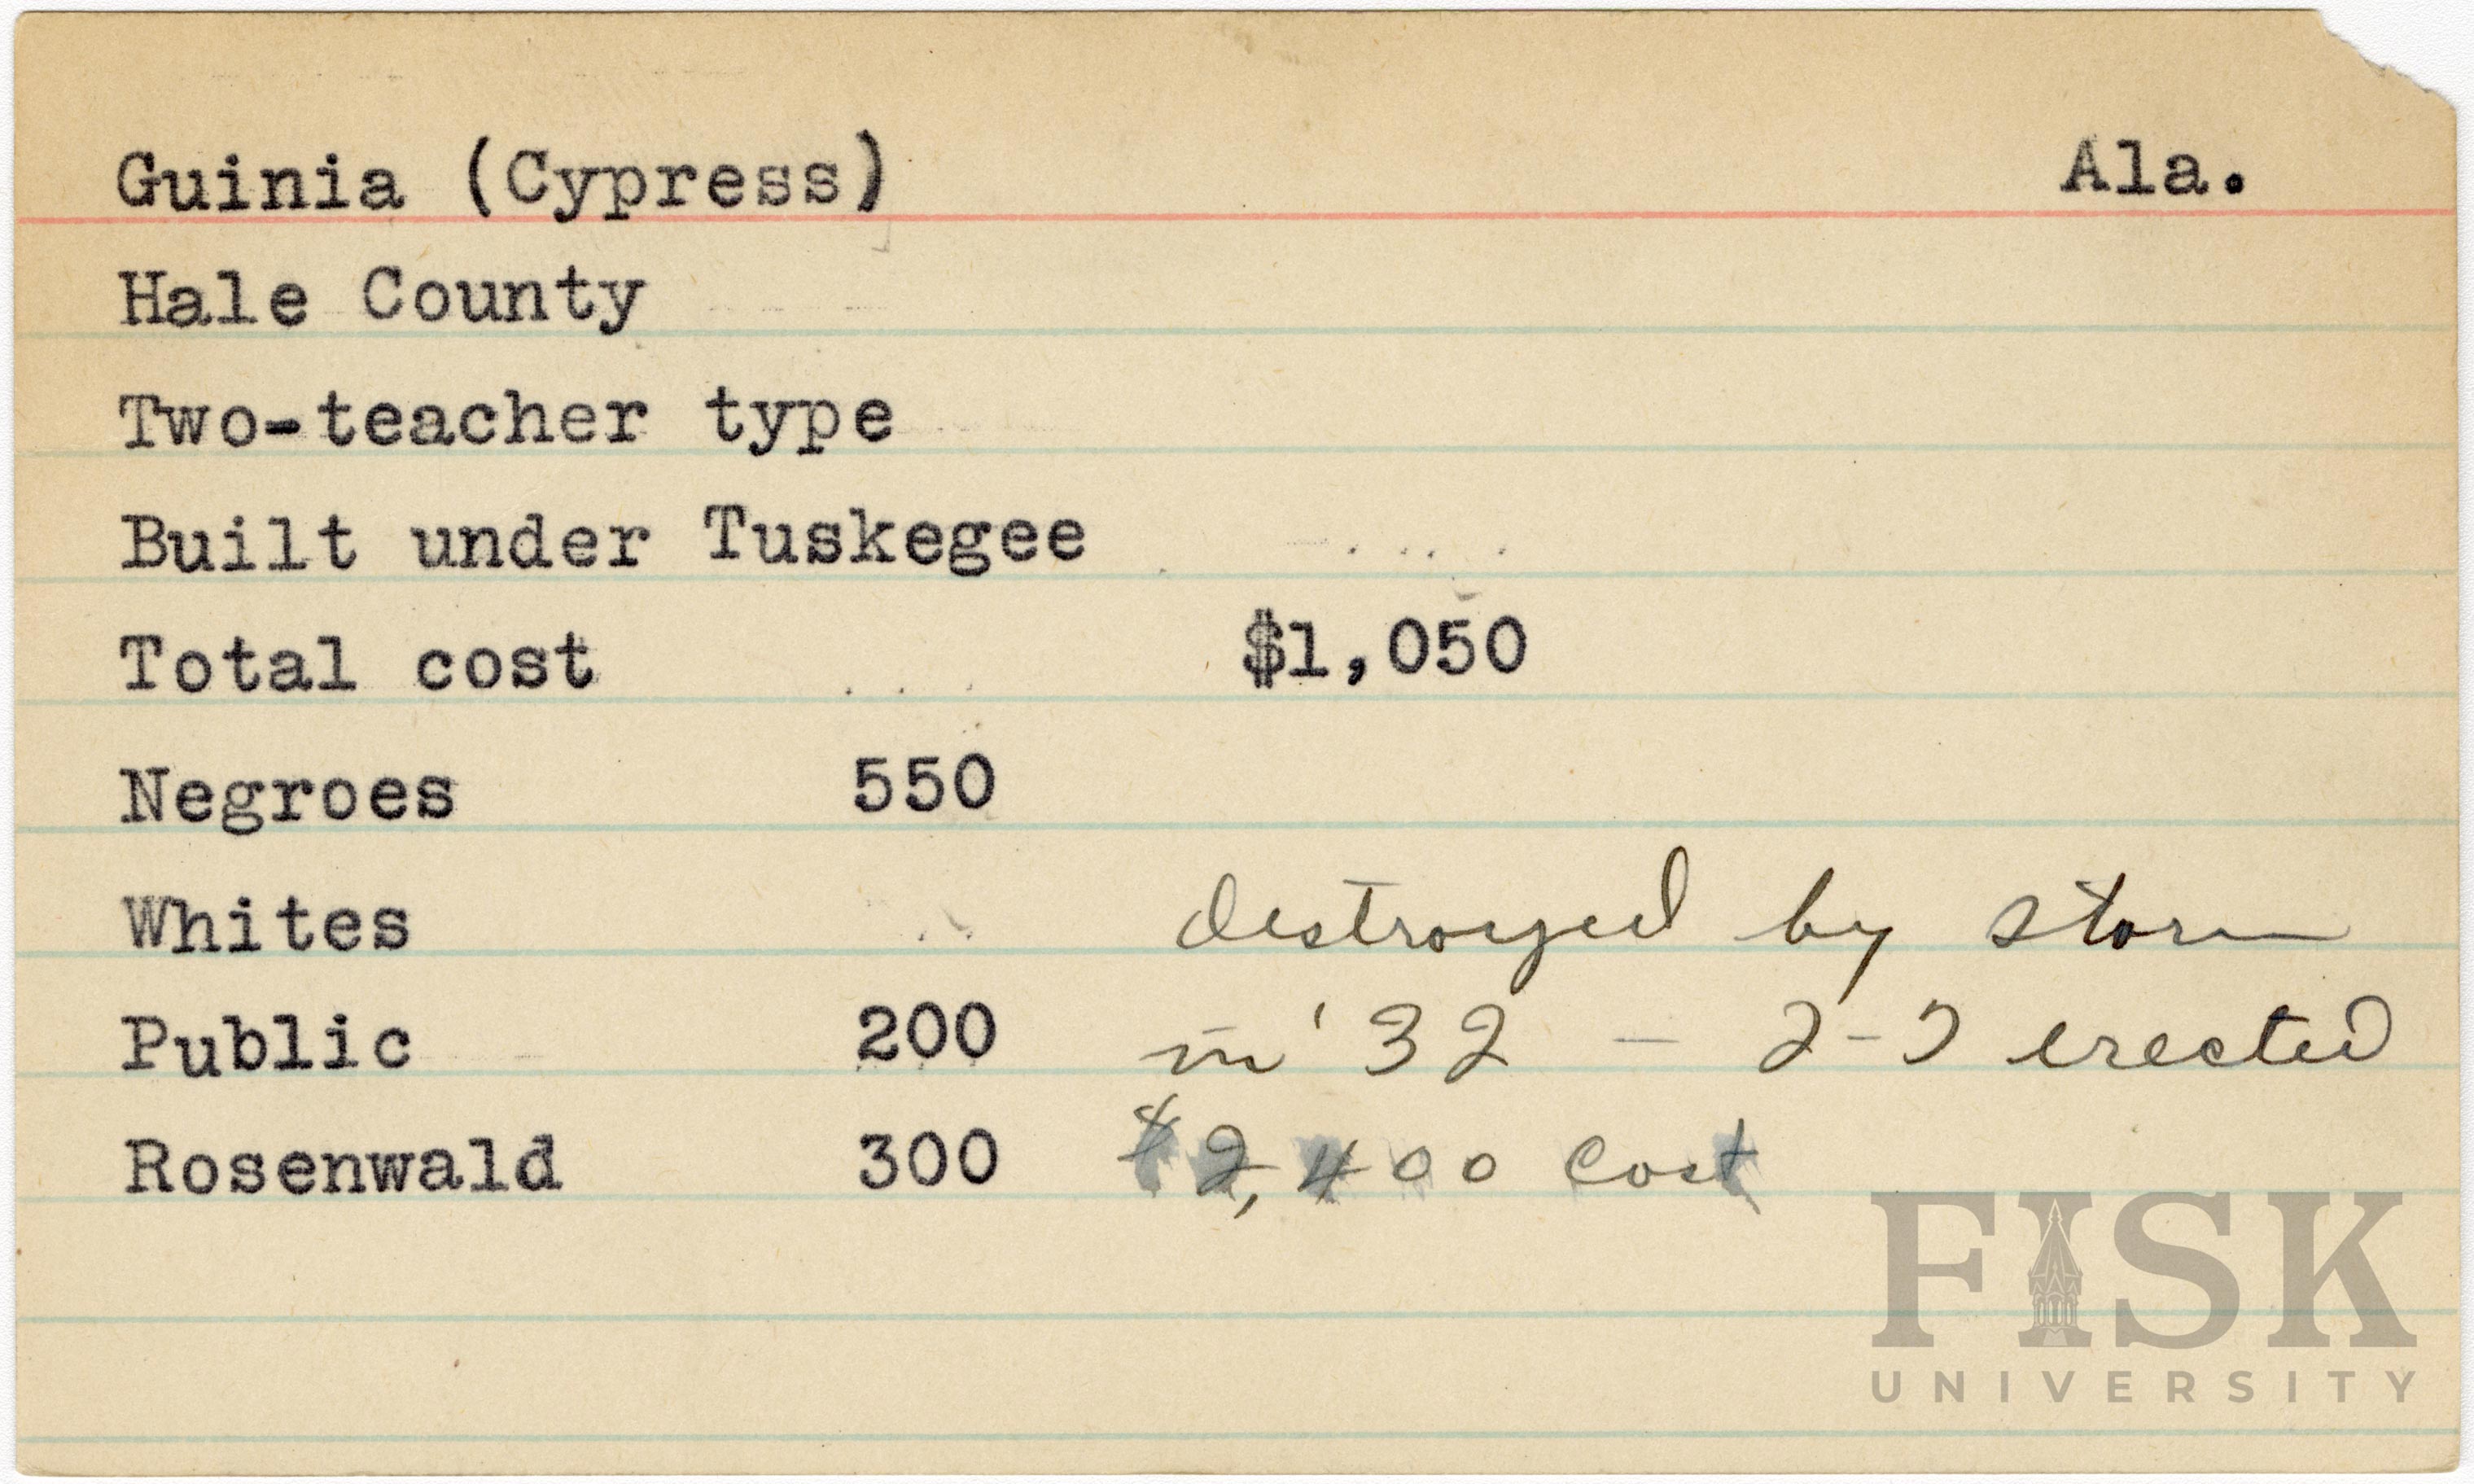 Guinia (Cypress) Ala.
Hale County
Two-teacher type
Built under Tuskegee
Total cost $1,050
Negroes 550
Whites destroyed by storm
Public 200 in '32 — 2-T erected
Rosenwald 300 $2,400 cost
FISK
UNIVERSITY